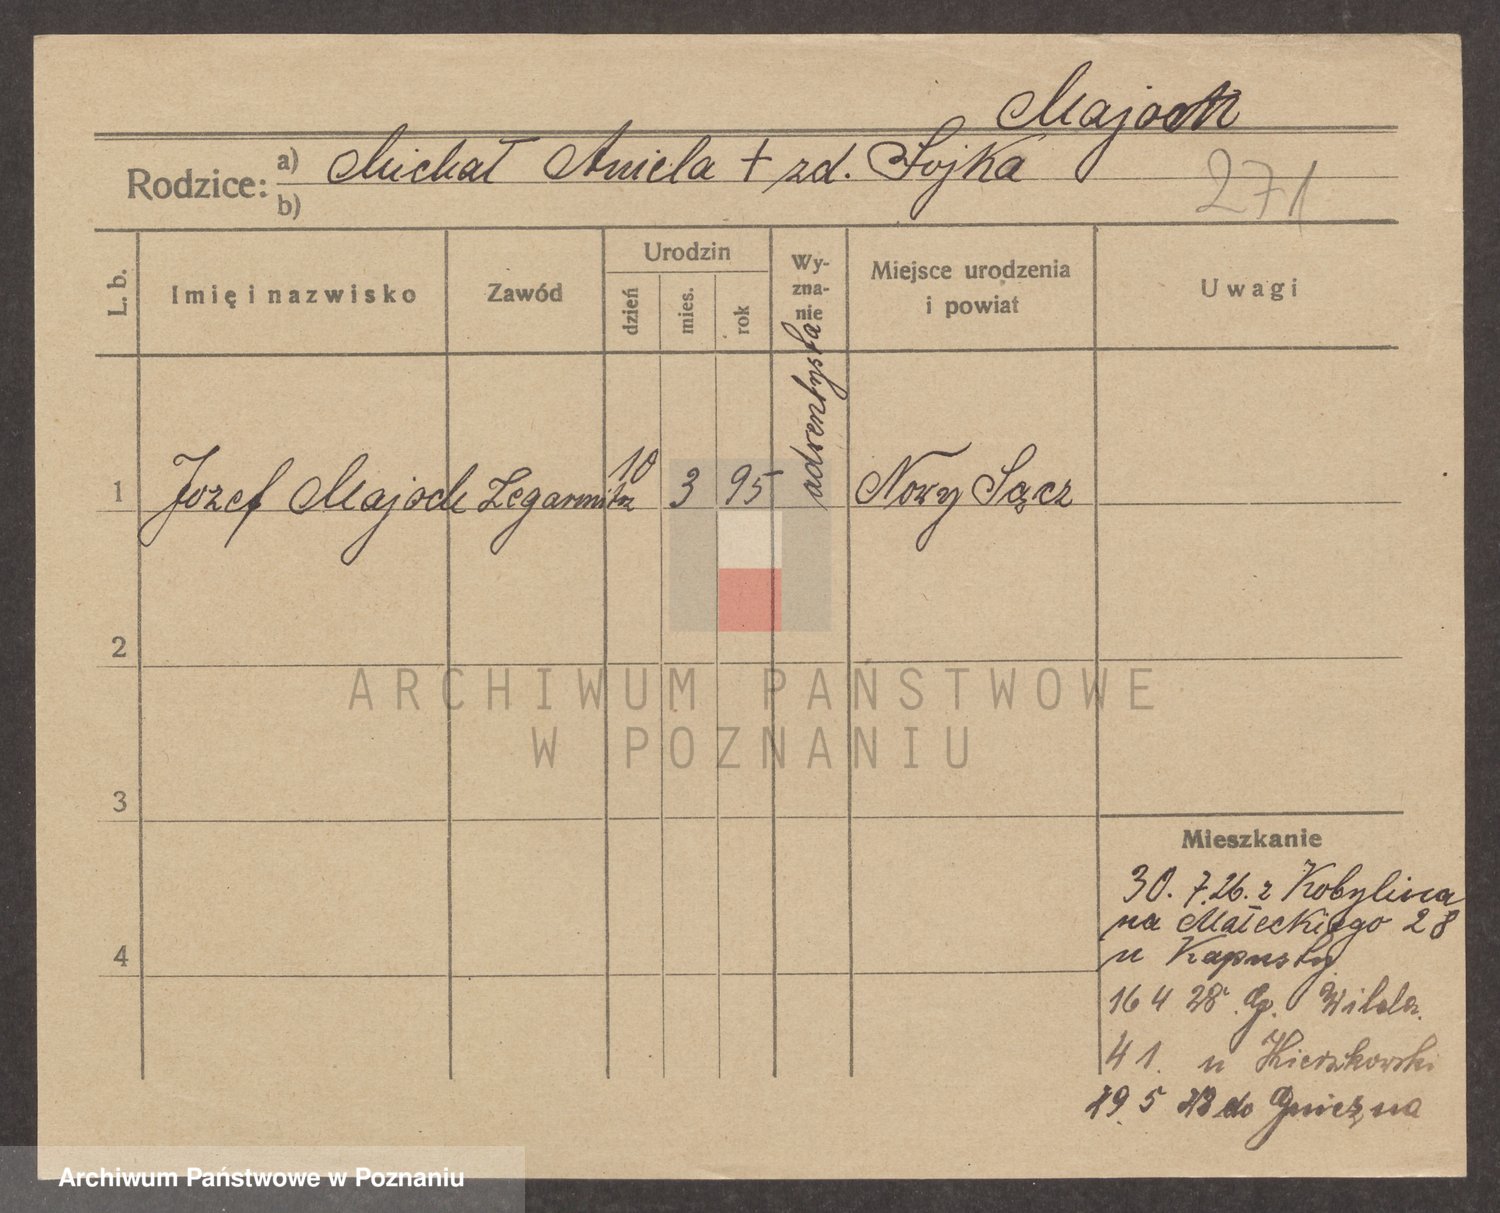 Majoch
Rodzice: a) Michał Aniela + zd. Sojka
b)
271
L. b.
Imię i nazwisko
Zawód
Urodzin
dzień
mies.
rok
Wy-
zna-
nie
Miejsce urodzenia
i powiat
Uwagi
1 Józef Majoch Zegarmitrz 10 3 95 adwentysta Nowy Sącz
2
ARCHIWUM PAŃSTWOWE
W POZNANIU
3
Mieszkanie
30. 7. 26. z Kobylina
na Małeckiego 28
4
u Kapusty
16 4 28. G. Wilda
41. u Kierzkowski
29 5 28 do Gniezna
Archiwum Państwowe w Poznaniu